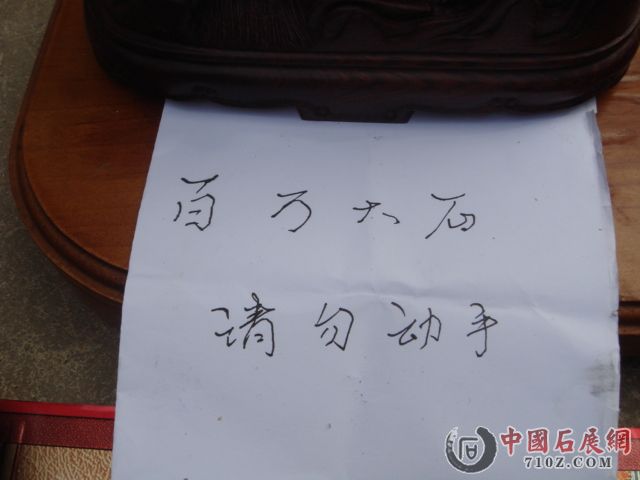 百万大石
请勿动手
中國石展網
710Z.COM